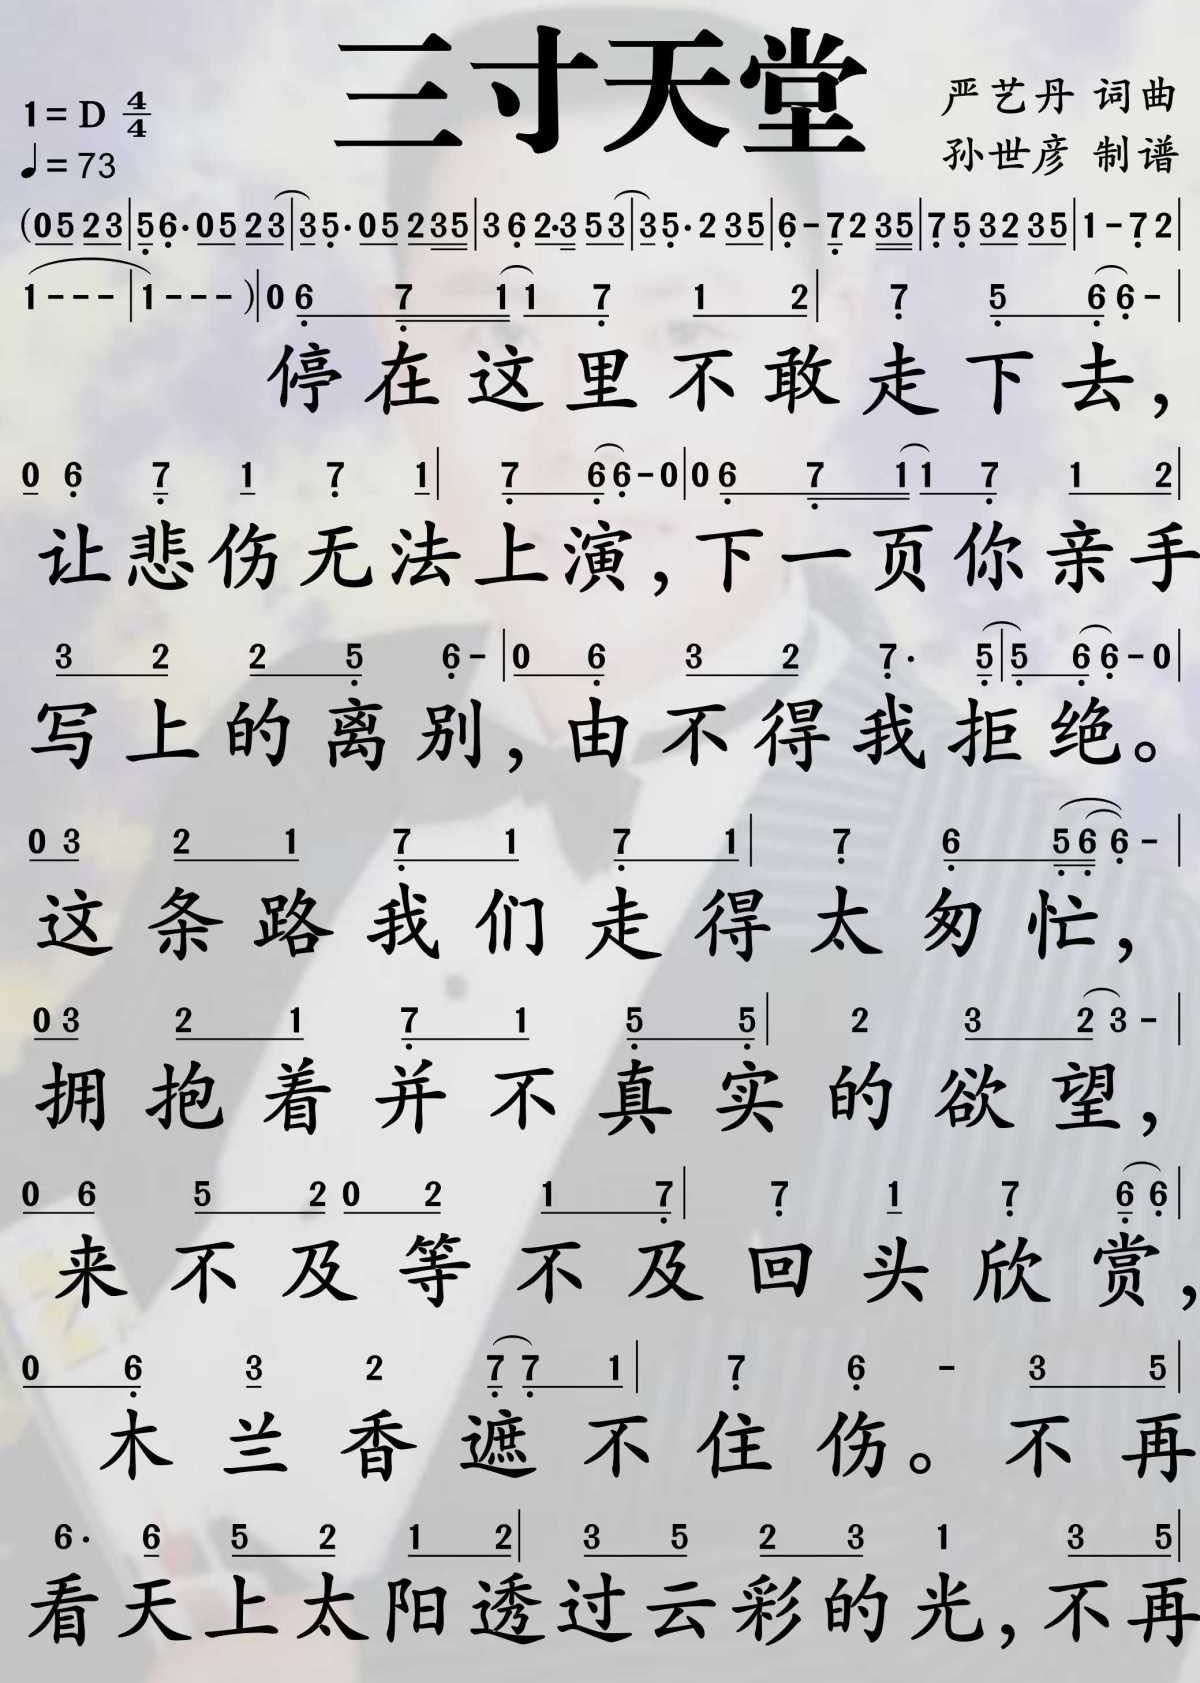 三寸天堂
1=D 4/4
♩=73
严艺丹 词曲
孙世彦 制谱
(05 23|56·05 23|35·05 235|36 2·3 53|35·2 35|6-72 35|75 3235|1-72|
1---|1---)|0 6 7 1 1 7 1 2|7 5 6 6-|
停在这里不敢走下去，
0 6 7 1 7 1|7 6 6-0|0 6 7 1 1 7 1 2|
让悲伤无法上演，下一页你亲手
3 2 2 5 6-|0 6 3 2 7· 5|5 6 6-0|
写上的离别，由不得我拒绝。
0 3 2 1 7 1 7 1|7 6 5 6 6-|
这条路我们走得太匆忙，
0 3 2 1 7 1 5 5|2 3 2 3-|
拥抱着并不真实的欲望，
0 6 5 2 0 2 1 7|7 1 7 6 6|
来不及等不及回头欣赏，
0 6 3 2 7 7 1|7 6 - 3 5|
木兰香遮不住伤。不再
6· 6 5 2 1 2|3 5 2 3 1 3 5|
看天上太阳透过云彩的光，不再